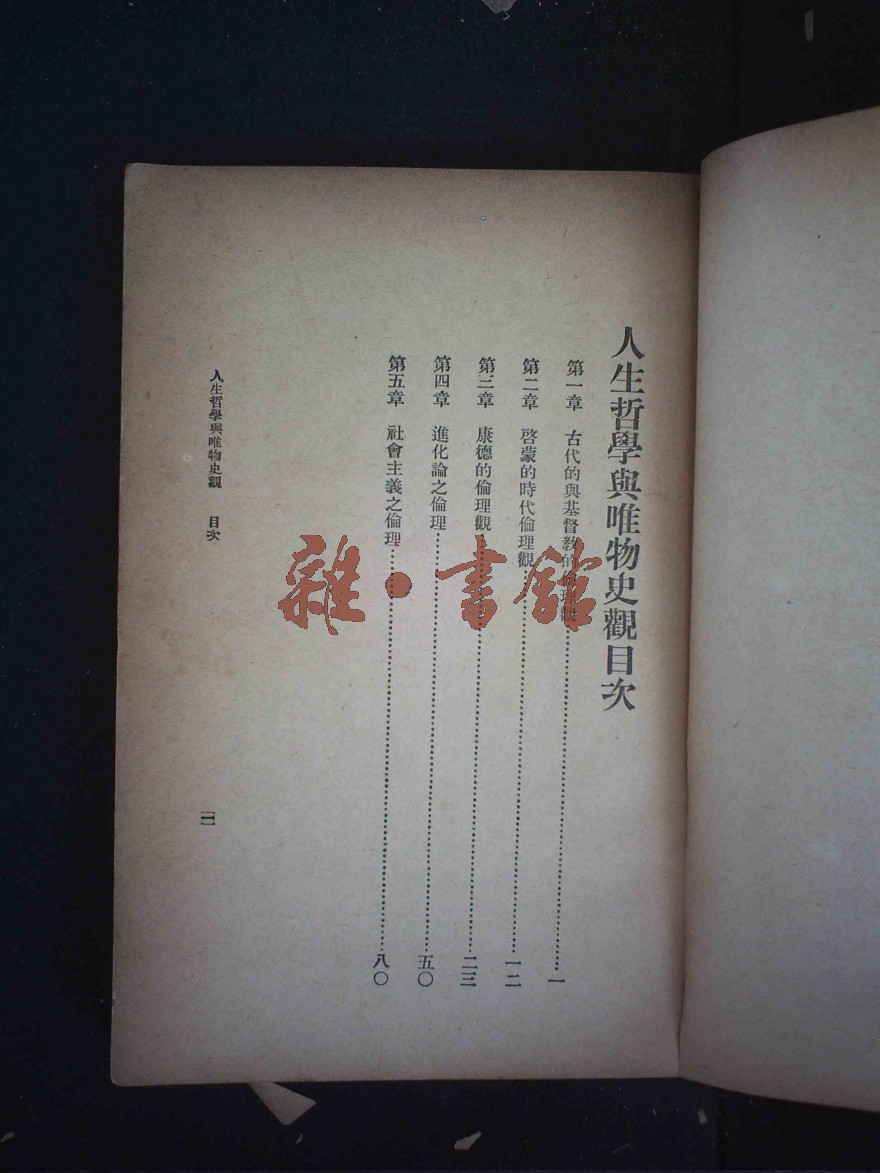 人生哲學與唯物史觀目次
第一章 古代的與基督教的倫理觀……一
第二章 啓蒙的時代倫理觀……一二
第三章 康德的倫理觀……二三
第四章 進化論之倫理……五〇
第五章 社會主義之倫理……八〇
人生哲學與唯物史觀 目次
雜·書館